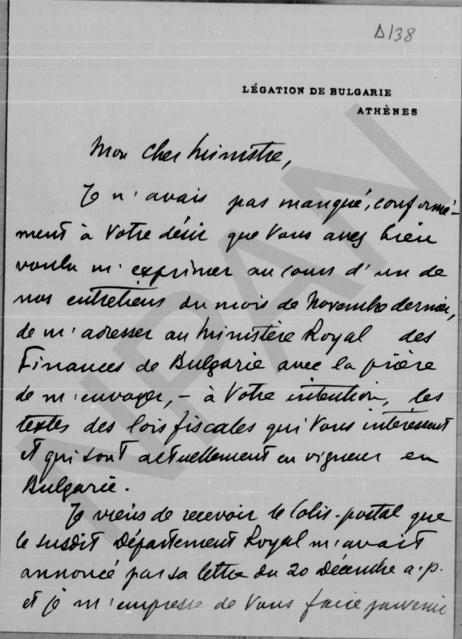 Δ/38
LÉGATION DE BULGARIE
ATHÈNES
Mon cher Ministre,
Je n'avais pas manqué, conformé-
ment à Votre désir que Vous avez bien
voulu m'exprimer au cours d'un de
nos entretiens du mois de Novembre dernier,
de m'adresser au Ministère Royal des
Finances de Bulgarie avec la prière
de m'envoyer, - à Votre intention, les
textes des lois fiscales qui Vous intéressent
et qui sont actuellement en vigueur en
Bulgarie.
Je viens de recevoir le Colis-postal que
le susdit Département Royal m'avait
annoncé par sa lettre du 20 Décembre a.p.
et je m'empresse de Vous faire parvenir
NPAN